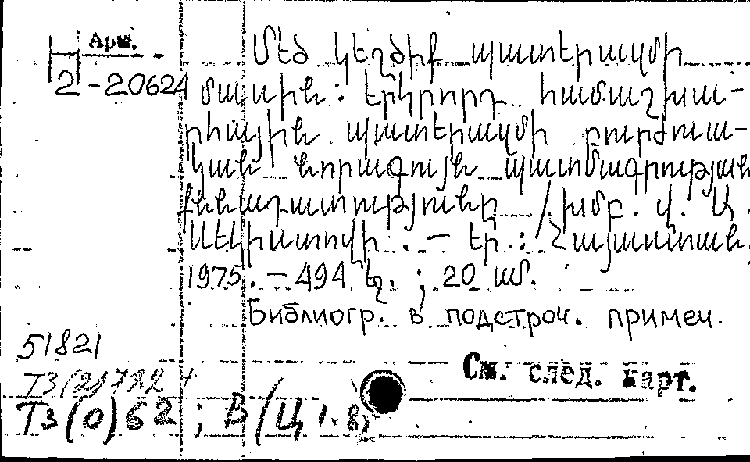 Арм.
2-20624
Մեծ կեղծիք պատերազմի
մասին : Երկրորդ համաշխար-
հային պատերազմի բուրժուա-
կան նորագույն պատմագրության
քննադատությունը / խմբ. Վ. Ա.
Սեկիստովի . – Եր. : Հայաստան,
1975. – 494 էջ. ; 20 սմ.
Библиогр. в подстроч. примеч.
51821
См. след. карт.
Т3(2)722
Т3(0)62 ; В(Ц